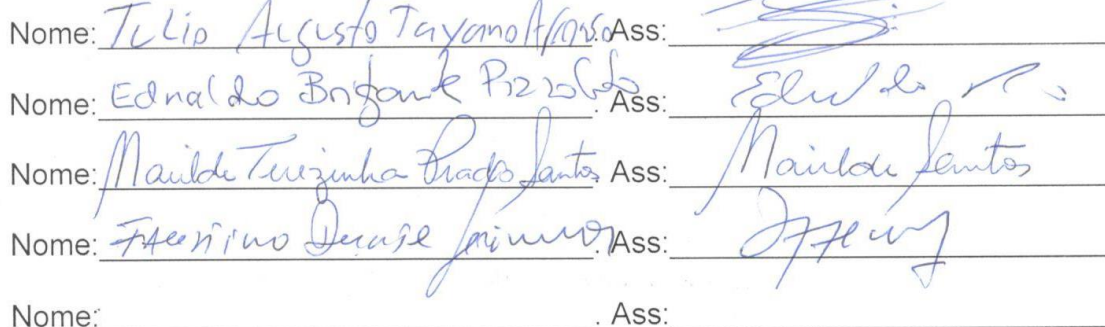 Nome: Tulio Augusto Tayano Afonso. Ass:
Nome: Ednaldo Brigante Pizzolato. Ass: Ednaldo
Nome: Marilde Terezinha Prado Santos. Ass: Marilde Santos
Nome: Ass:
Nome: . Ass: